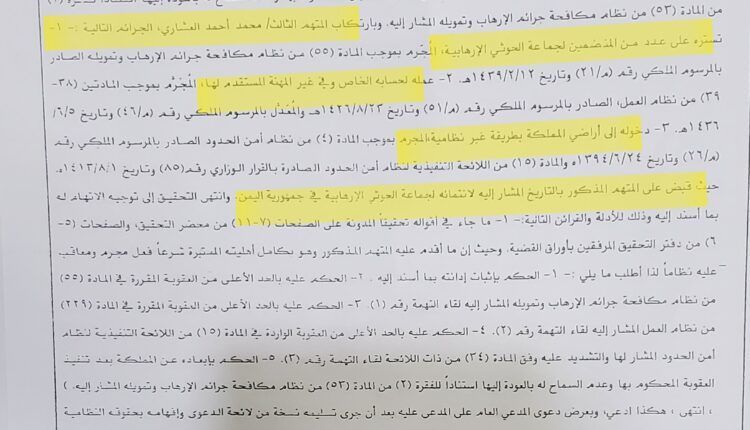 من المادة (٥٣) من نظام مكافحة جرائم الإرهاب وتمويله المشار إليه. وبارتكاب المتهم الثالث/ محمد أحمد العشاري، الجرائم التالية :- ١-
تستره على عدد من المنضمين لجماعة الحوثي الإرهابية، المُجرّم بموجب المادة (٥٥) من نظام مكافحة جرائم الإرهاب وتمويله الصادر
بالمرسوم الملكي رقم (م/٢١) وتاريخ ١٤٣٩/٢/١٢هـ. ٢- عمله لحسابه الخاص وفي غير المهنة المستقدم لها، المُجَرَّم بموجب المادتين (٣٨-
٣٩) من نظام العمل، الصادر بالمرسوم الملكي رقم (م/٥١) وتاريخ ١٤٢٦/٨/٢٣هـ والمُعدّل بالمرسوم الملكي رقم (م/٤٦) وتاريخ ٦/٥/
١٤٣٦هـ. ٣- دخوله إلى أراضي المملكة بطريقة غير نظامية،المجرم بموجب المادة (٤) من نظام أمن الحدود الصادر بالمرسوم الملكي رقم
(م/٢٦) وتاريخ ١٣٩٤/٦/٢٤ه والمادة (١٥) من اللائحة التنفيذية لنظام أمن الحدود الصادرة بالقرار الوزاري رقم(٨٥) وتاريخ ١٤١٣/٨/١ه.
حيث قبض على المتهم المذكور بالتاريخ المشار إليه لانتمائه لجماعة الحوثي الإرهابية في جمهورية اليمن. وانتهى التحقيق إلى توجيه الاتهام له
بما أسند إليه وذلك للأدلة والقرائن التالية:- ١- ما جاء في أقواله تحقيقاً المدونة على الصفحات (٧-١١) من محضر التحقيق، والصفحات (٥-
٦) من دفتر التحقيق المرفقين بأوراق القضية. وحيث إن ما أقدم عليه المتهم المذكور وهو بكامل أهليته المعتبرة شرعاً فعل مجرم ومعاقب
عليه نظاماً لذا أطلب ما يلي :- ١- الحكم بإثبات إدانته بما أسند إليه . ٢- الحكم عليه بالحد الأعلى من العقوبة المقررة في المادة (٥٥)
من نظام مكافحة جرائم الإرهاب وتمويله المشار إليه لقاء التهمة رقم (١). ٣- الحكم عليه بالحد الأعلى من العقوبة المقررة في المادة (٢٢٩)
من نظام العمل المشار إليه لقاء التهمة رقم (٢). ٤- الحكم عليه بالحد الأعلى من العقوبة الواردة في المادة (١٥) من اللائحة التنفيذية لنظام
أمن الحدود المشار لها والتشديد عليه وفق المادة (٣٤) من ذات اللائحة لقاء التهمة رقم (٣). ٥- الحكم بإبعاده عن المملكة بعد تنفيذ
العقوبة المحكوم بها وعدم السماح له بالعودة إليها استناداً للفقرة (٢) من المادة (٥٣) من نظام مكافحة جرائم الإرهاب وتمويله المشار إليه. )
، انتهى ، هكذا ادعى، وبعرض دعوى المدعي العام على المدعى عليه بعد أن جرى تسليمه نسخة من لائحة الدعوى وإفهامه بحقوقه النظامية